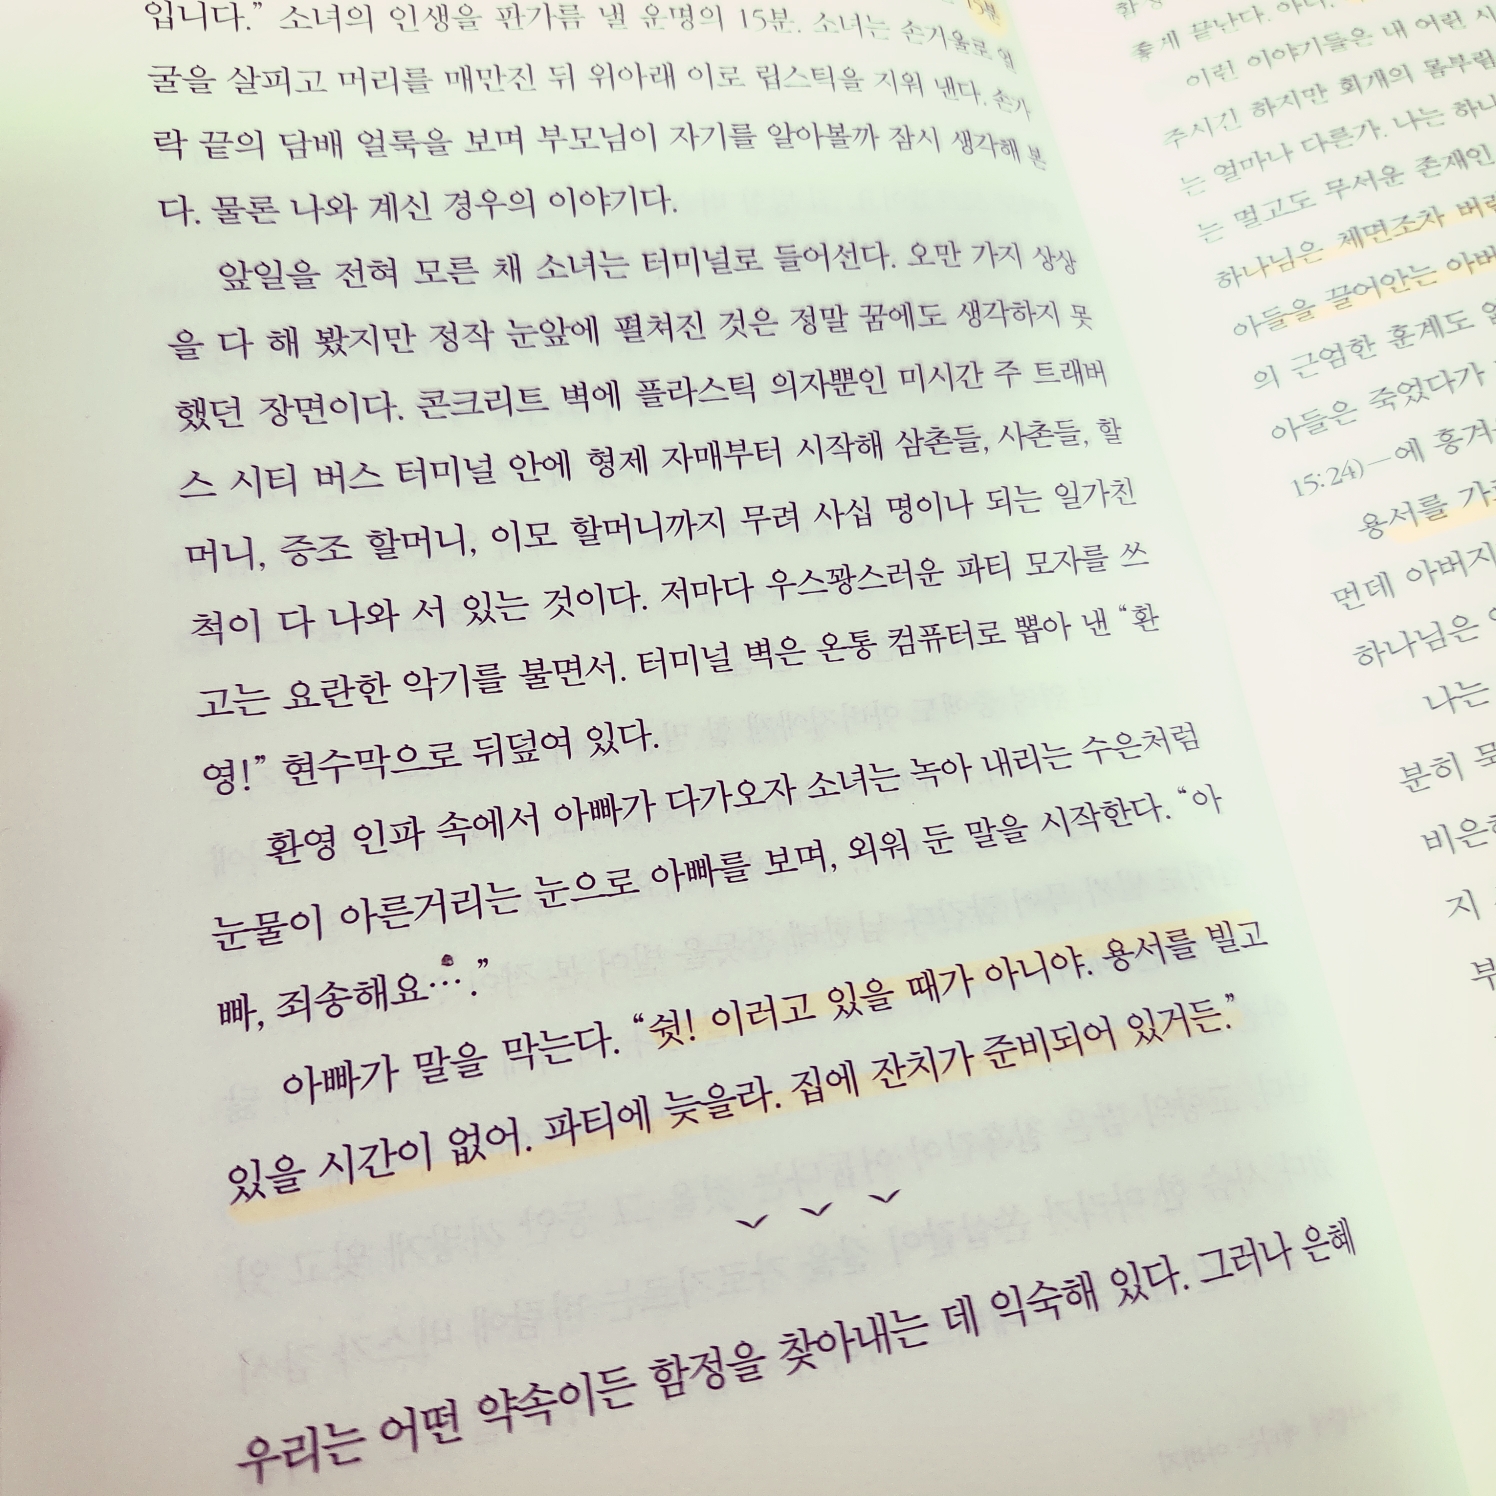 입니다.” 소녀의 인생을 판가름 낼 운명의 15분. 소녀는 손거울로 얼
굴을 살피고 머리를 매만진 뒤 위아래 이로 립스틱을 지워 낸다. 손가
락 끝의 담배 얼룩을 보며 부모님이 자기를 알아볼까 잠시 생각해 본
다. 물론 나와 계신 경우의 이야기다.
앞일을 전혀 모른 채 소녀는 터미널로 들어선다. 오만 가지 상상
을 다 해 봤지만 정작 눈앞에 펼쳐진 것은 정말 꿈에도 생각하지 못
했던 장면이다. 콘크리트 벽에 플라스틱 의자뿐인 미시간 주 트래버
스 시티 버스 터미널 안에 형제 자매부터 시작해 삼촌들, 사촌들, 할
머니, 증조 할머니, 이모 할머니까지 무려 사십 명이나 되는 일가친
척이 다 나와 서 있는 것이다. 저마다 우스꽝스러운 파티 모자를 쓰
고는 요란한 악기를 불면서. 터미널 벽은 온통 컴퓨터로 뽑아 낸 “환
영!” 현수막으로 뒤덮여 있다.
환영 인파 속에서 아빠가 다가오자 소녀는 녹아 내리는 수은처럼
눈물이 아른거리는 눈으로 아빠를 보며, 외워 둔 말을 시작한다. “아
빠, 죄송해요….”
아빠가 말을 막는다. “쉿! 이러고 있을 때가 아니야. 용서를 빌고
있을 시간이 없어. 파티에 늦을라. 집에 잔치가 준비되어 있거든.”
우리는 어떤 약속이든 함정을 찾아내는 데 익숙해 있다. 그러나 은혜
좋게 끝난다.
이런 이야기들은 내 어린 시
주시긴 하지만 회개의 몸부림
는 얼마나 다른가. 나는 하나
는 멀고도 무서운 존재인
하나님은 체면조차 버린
아들을 끌어안는 아버
의 근엄한 훈계도 없
아들은 죽었다가
15:24)—에 흥겨
용서를 가
먼데 아버지
하나님은
나는
분히
비은
지
부